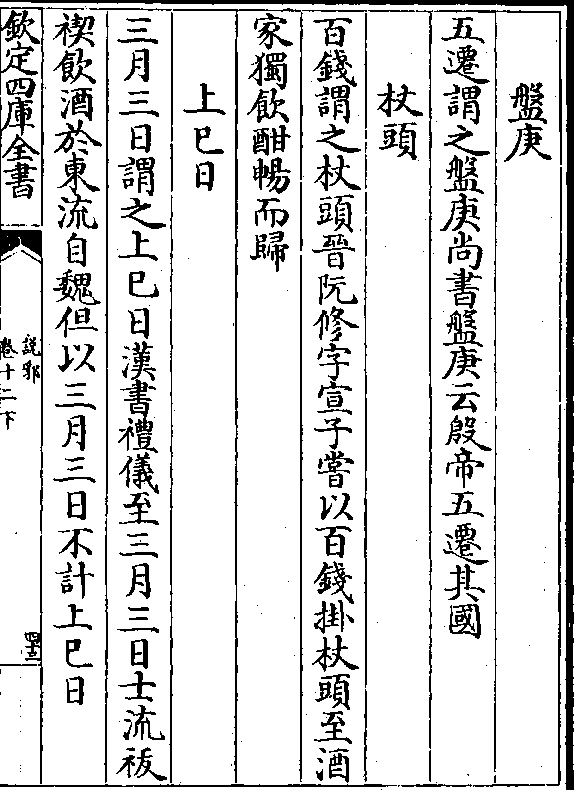 盤庚
五遷謂之盤庚尚書盤庚云殷帝五遷其國
杖頭
百錢謂之杖頭晉阮修字宣子嘗以百錢掛杖頭至酒
家獨飲酣暢而歸
上巳日
三月三日謂之上巳日漢書禮儀至三月三日士流祓
禊飲酒於東流自魏但以三月三日不計上巳日
欽定四庫全書
說郛
卷十二下
四十三